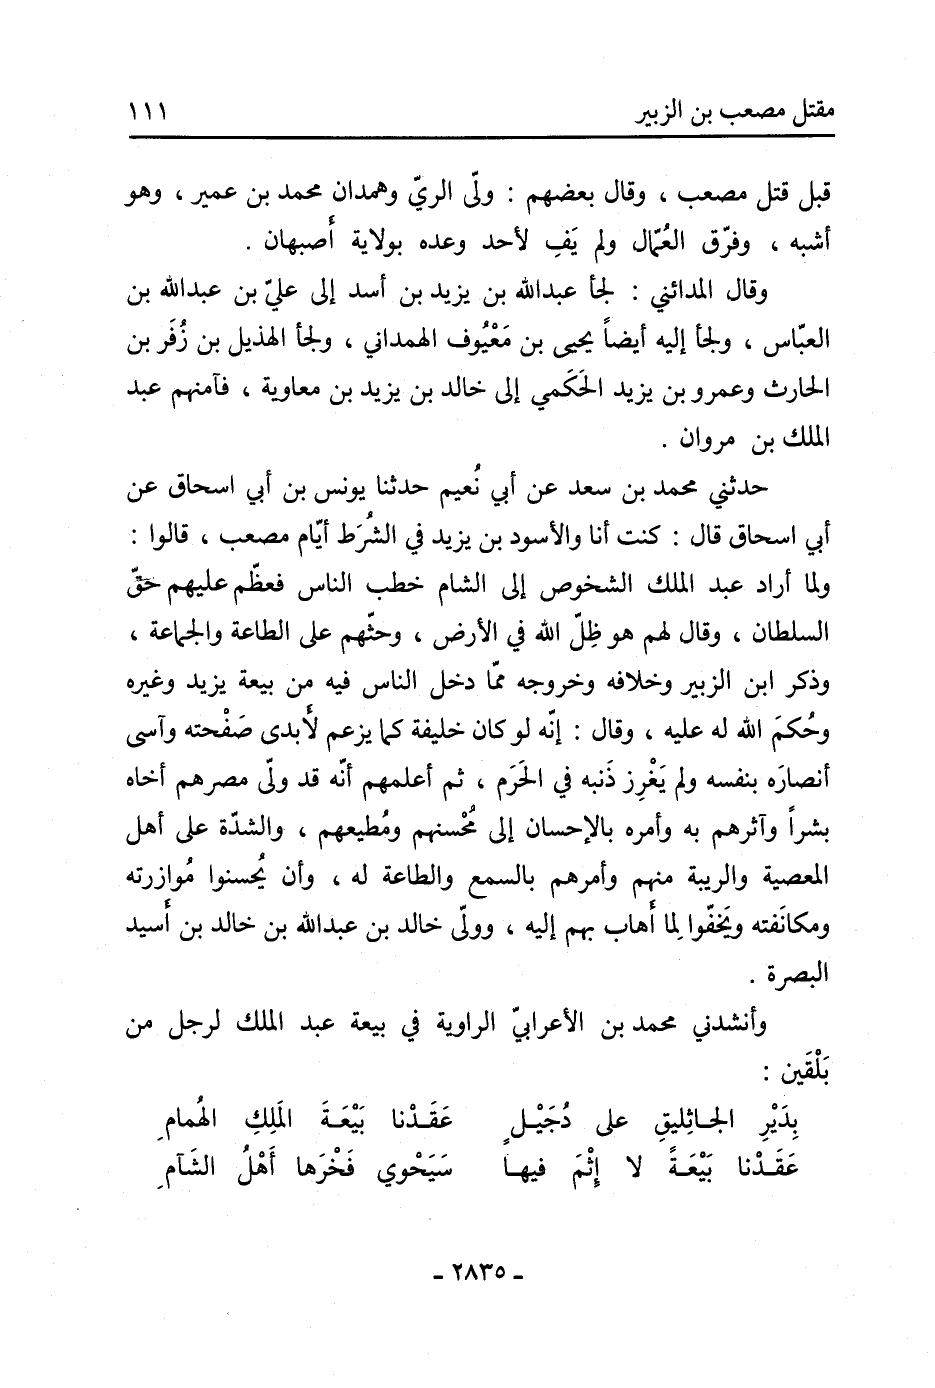 مقتل مصعب بن الزبير ١١١
قبل قتل مصعب ، وقال بعضهم : ولّى الريّ وهمدان محمد بن عمير ، وهو
أشبه ، وفرّق العُمّال ولم يَفِ لأحد وعده بولاية أصبهان .
وقال المدائني : لجأ عبدالله بن يزيد بن أسد إلى عليّ بن عبدالله بن
العبّاس ، ولجأ إليه أيضاً يحيى بن مَعْيُوف الهمداني ، ولجأ الهذيل بن زُفَر بن
الحارث وعمرو بن يزيد الحَكَمي إلى خالد بن يزيد بن معاوية ، فآمنهم عبد
الملك بن مروان .
حدثني محمد بن سعد عن أبي نُعيم حدثنا يونس بن أبي اسحاق عن
أبي اسحاق قال : كنت أنا والأسود بن يزيد في الشُرَط أيّام مصعب ، قالوا :
ولما أراد عبد الملك الشخوص إلى الشام خطب الناس فعظّم عليهم حَقّ
السلطان ، وقال لهم هو ظِلّ الله في الأرض ، وحثّهم على الطاعة والجماعة ،
وذكر ابن الزبير وخلافه وخروجه ممّا دخل الناس فيه من بيعة يزيد وغيره
وحُكمَ الله له عليه ، وقال : إنّه لو كان خليفة كما يزعم لأبدى صَفْحته وآسى
أنصارَه بنفسه ولم يَغْرِز ذَنبه في الحَرَم ، ثم أعلمهم أنّه قد ولّى مصرهم أخاه
بشراً وآثرهم به وأمره بالإحسان إلى مُحْسنهم ومُطيعهم ، والشدّة على أهل
المعصية والريبة منهم وأمرهم بالسمع والطاعة له ، وأن يُحسنوا مُوازرته
ومكانَفته ويَخفّوا لِما أهاب بهم إليه ، وولّى خالد بن عبدالله بن خالد بن أسيد
البصرة .
وأنشدني محمد بن الأعرابيّ الراوية في بيعة عبد الملك لرجل من
بَلْقَين :
بِدَيْرِ الجـاثليقِ على دُجَيْـلٍ عَقَـدْنا بَيْعَـةَ المَلِكِ الهُمامِ
عَقَـدْنا بَيْعَـةً لا إِثْمَ فيهـا سَيَحْوي فَخْرَها أَهْلُ الشَآمِ
- ٢٨٣٥ -